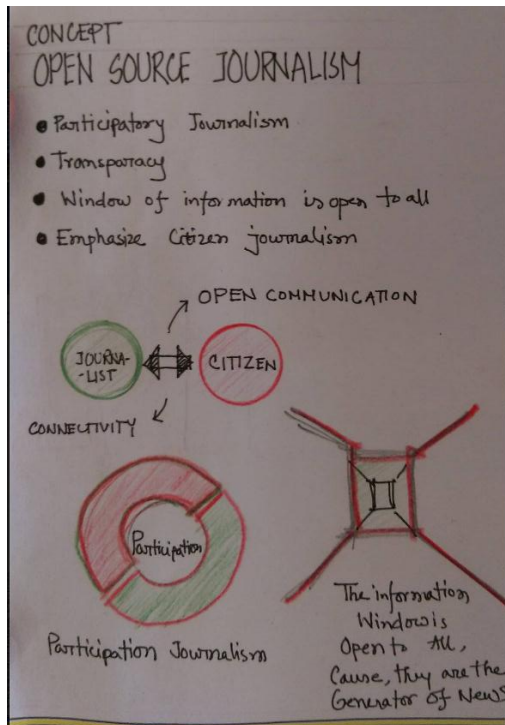 CONCEPT
OPEN SOURCE JOURNALISM
• Participatory Journalism
• Transparacy
• Window of information is open to all
• Emphasize Citizen journalism
OPEN COMMUNICATION
JOURNA-
LIST
CITIZEN
CONNECTIVITY
Participation
Participation Journalism
The information
Window is
Open to All,
Cause, they are the
Generator of News